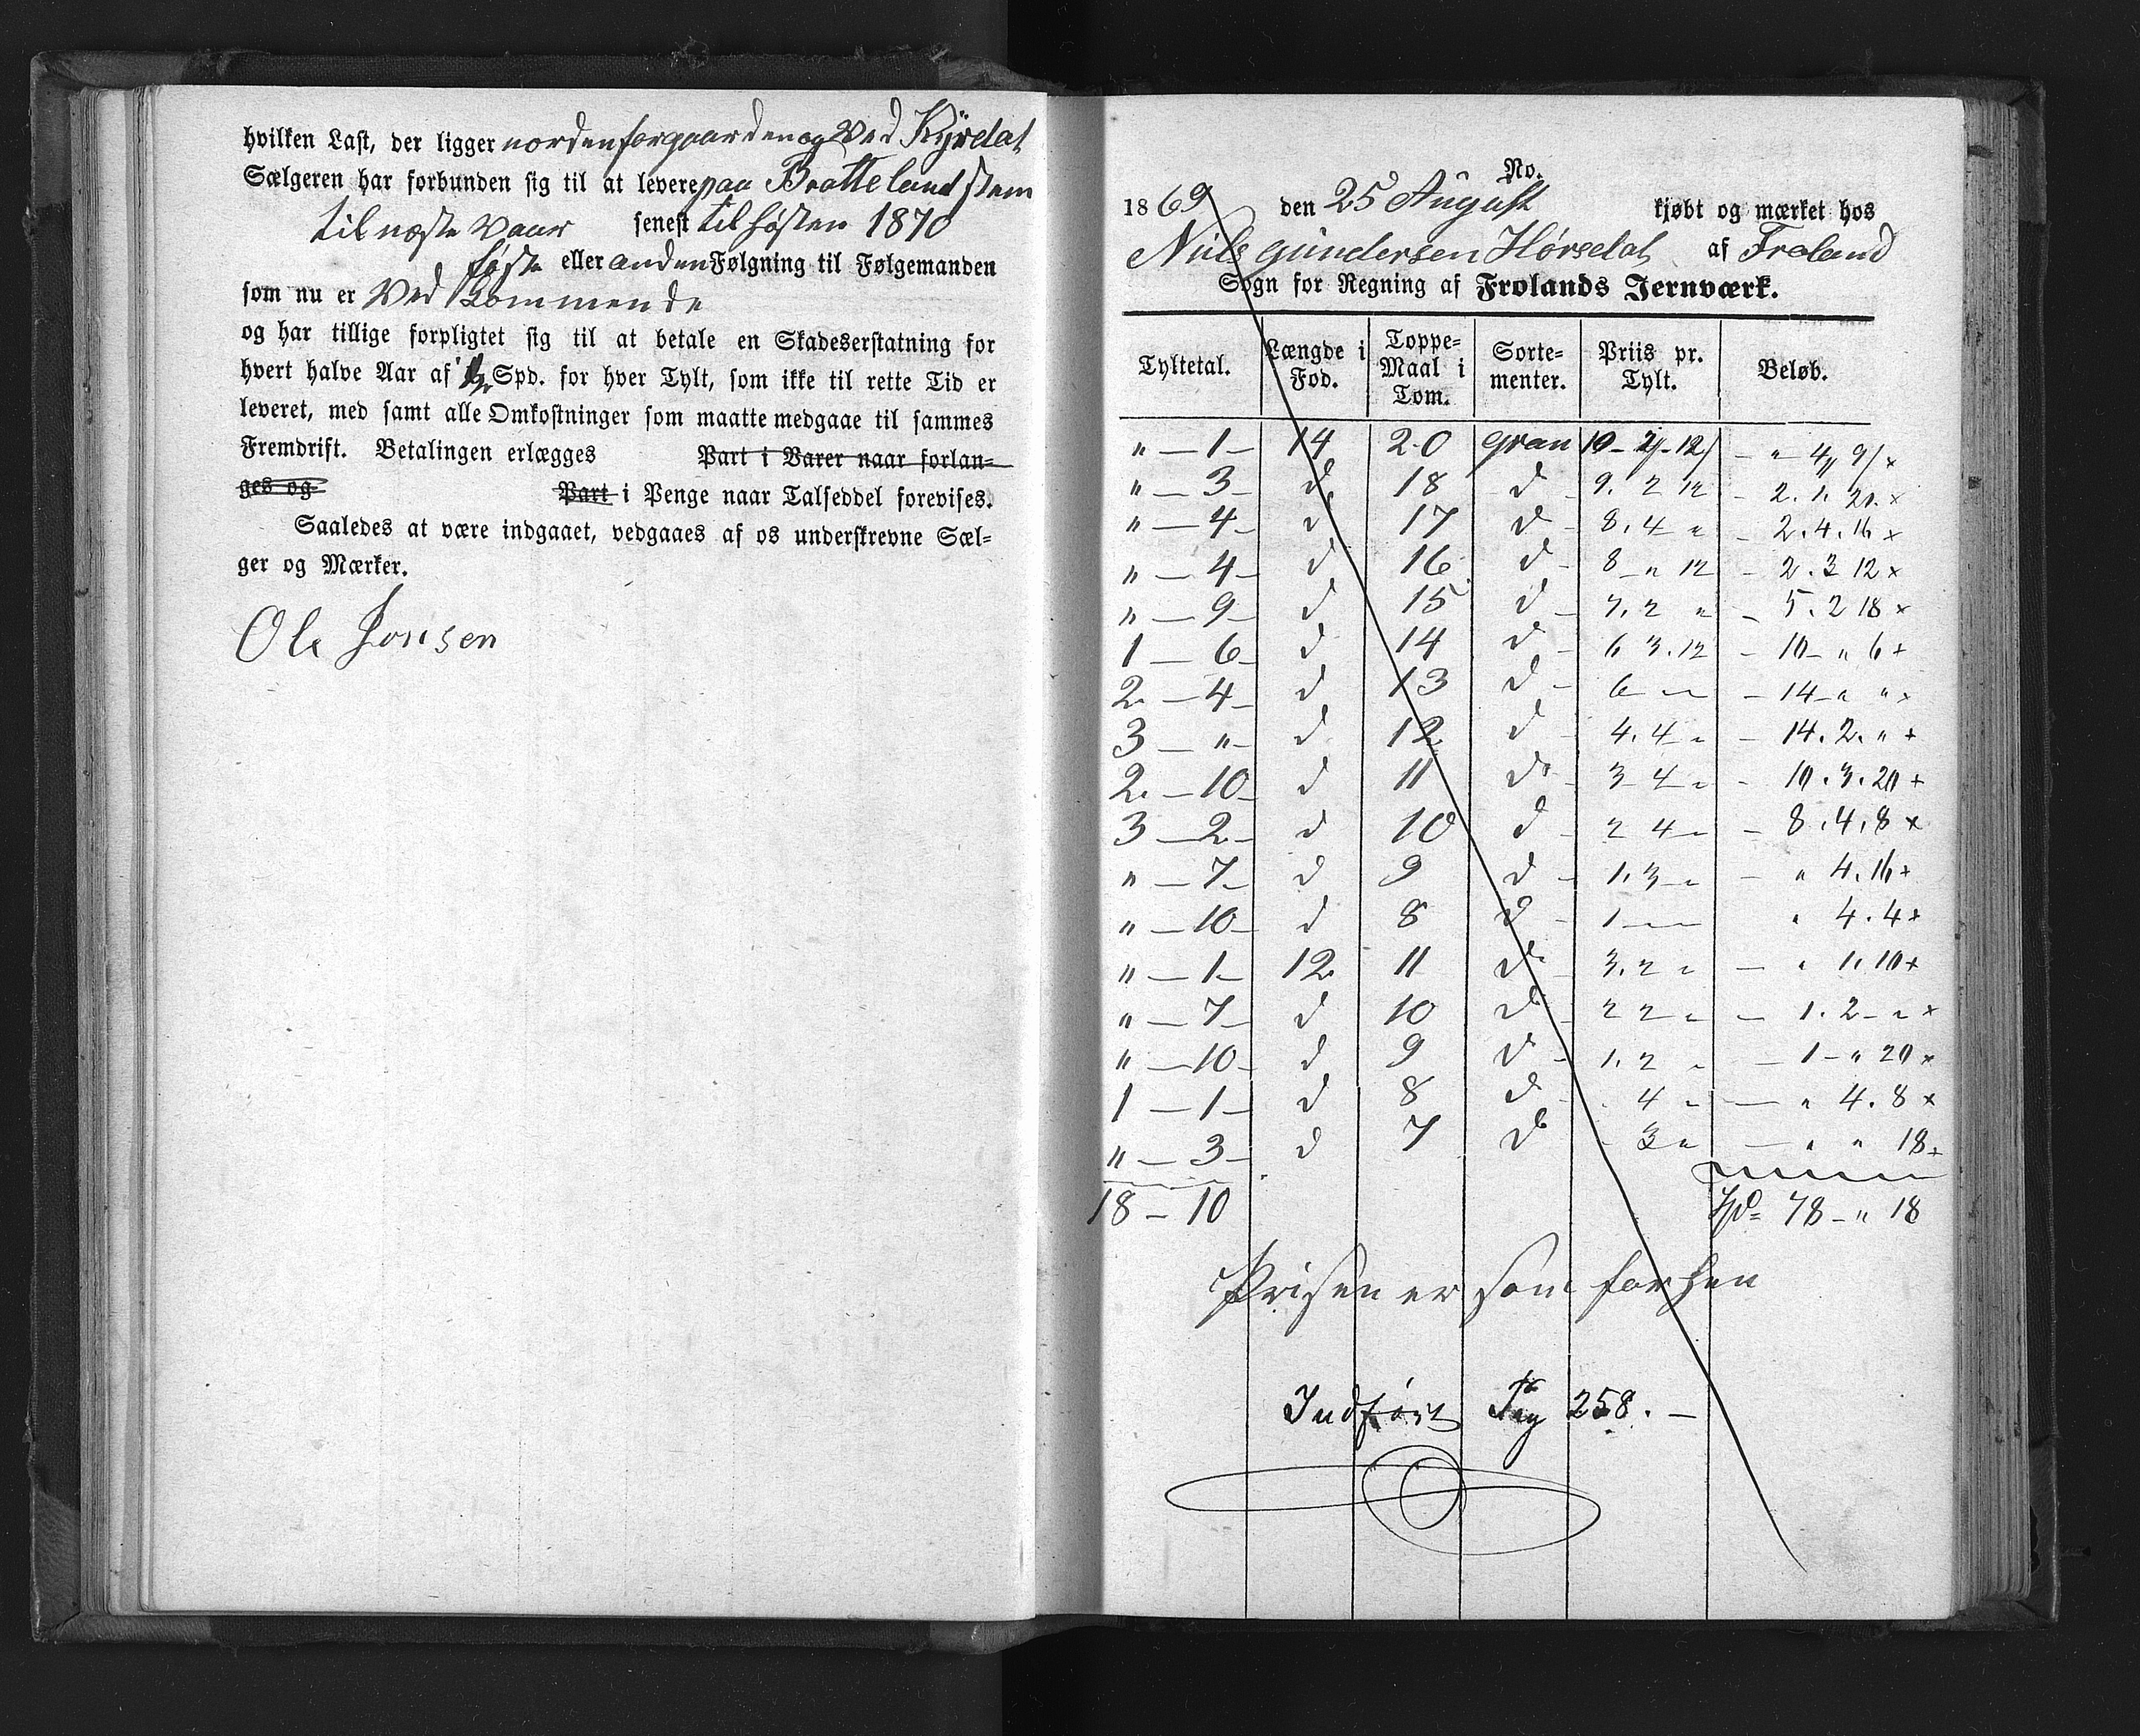 hvilken Last, der ligger nordenforgaarden og Ved Kyrdat
Sælgeren har forbunden sig til at levere paa Bratteland stem
til næste Vaar senest til høsten 1870
første eller anden Følgning til Følgemanden
som nu er Ved Kommende
og har tillige forpligtet sig til at betale en Skadeserstatning for
hvert halve Aar af ½ Spd. for hver Tylt, som ikke til rette Tid er
leveret, med samt alle Omkostninger som maatte medgaae til sammes
Fremdrift. Betalingen erlægges Part i Varer naar forlan-
ges og Part i Penge naar Talseddel forevises.
Saaledes at være indgaaet, vedgaaes af os underskrevne Sæl-
ger og Mærker.
Ole Jonsen
No.
1869 den 25 August kjøbt og mærket hos
Niils Gundersen Hørsdal af Froland
Sogn for Regning af Frolands Jernværk.
Tyltetal. Længde i Fod. Toppe-Maal i Tom. Sorte-menter. Priis pr. Tylt. Beløb.
" — 1 — 14 20 gran 10 - 2 - 12 — " 4 " 9 x
" — 3 — d 18 d — 9. 2 12 — 2. 1. 20. x
" — 4 — d 17 d — 8. 4 " — 2. 4. 16 x
" — 4 — d 16 d — 8 — " 12 — 2. 3 12 x
" — 9 — d 15 d — 7. 2 " — 5. 2 18 x
1 — 6 — d 14 d — 6 3. 12 — 10 — " 6 +
2 — 4 — d 13 d — 6 — — 14 — " " x
3 — " — d 12 d — 4. 4 " — 14. 2. " +
2 — 10 — d 11 d — 3 4 " — 10. 3. 20 +
3 — 2 — d 10 d — 2 4 — — 8. 4. 8 x
" — 7 — d 9 d — 1. 3 " — " 4. 16 +
" — 10 — d 8 d — 1 — — " 4. 4 +
" — 1 — 12 11 d — 3. 2 " — " 1. 10 +
" — 7 — d 10 d — 2 2 " — 1. 2 — " x
" — 10 — d 9 d — 1. 2 " — 1 — " 20 x
1 — 1 — d 8 d — 4 " — " 4. 8 x
" — 3 — d 7 d — 3 " — " " 18 +
18 — 10 Spd = 78 — " 18
Prisen er som forhen
Indført Pag 258. —